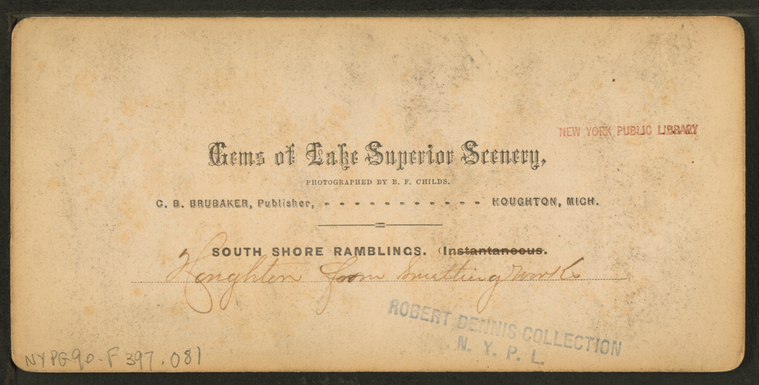 NEW YORK PUBLIC LIBRARY
Gems of Lake Superior Scenery,
PHOTOGRAPHED BY B. F. CHILDS.
C. B. BRUBAKER, Publisher, - - - - - - - - - - - HOUGHTON, MICH.
SOUTH SHORE RAMBLINGS. Instantaneous.
Houghton from Smelting Works
ROBERT DENNIS COLLECTION
N. Y. P. L.
NYPG90-F397.081